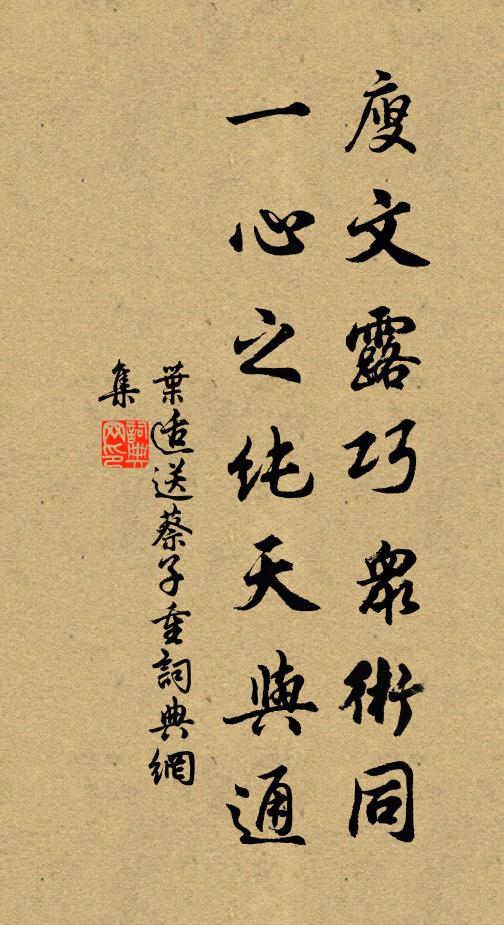 廋文露巧衆術同
一心之纯天與通
葉适送蔡子重詞典網
集
詞典
网印